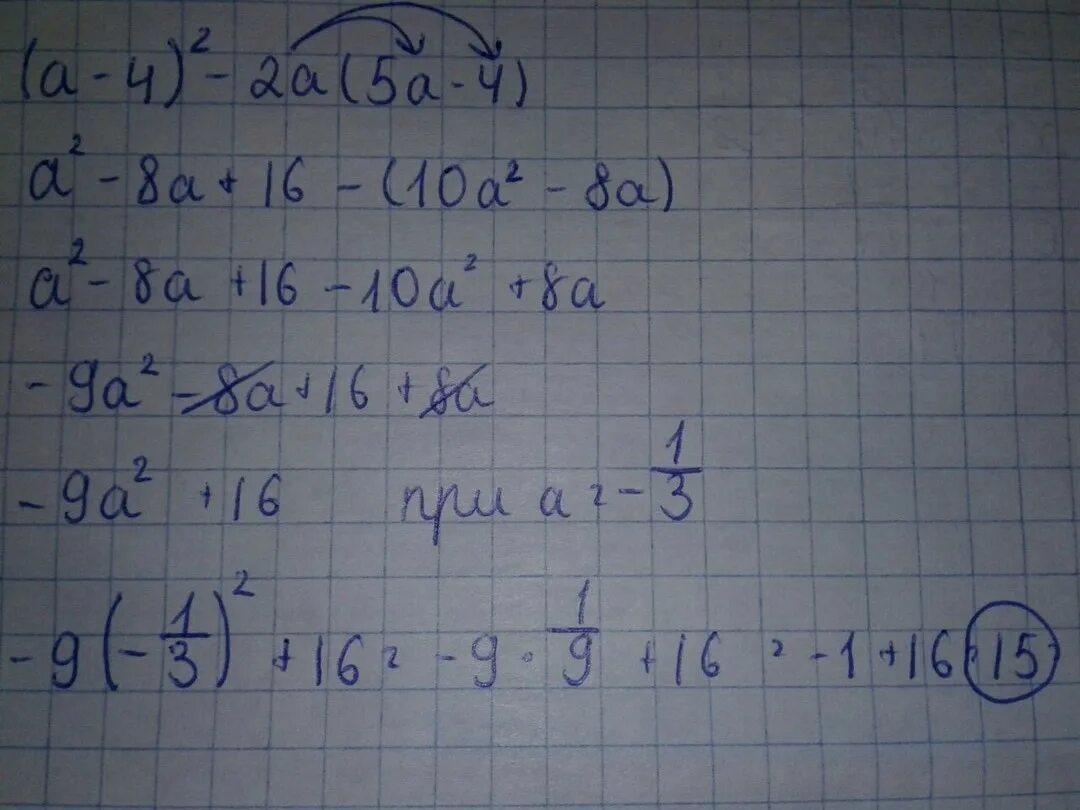 (a - 4)² - 2a(5a - 4)
a² - 8a + 16 - (10a² - 8a)
a² - 8a + 16 - 10a² + 8a
- 9a² - 8a + 16 + 8a
- 9a² + 16 при a = - 1/3
- 9(- 1/3)² + 16 = - 9 · 1/9 + 16 = - 1 + 16 = 15